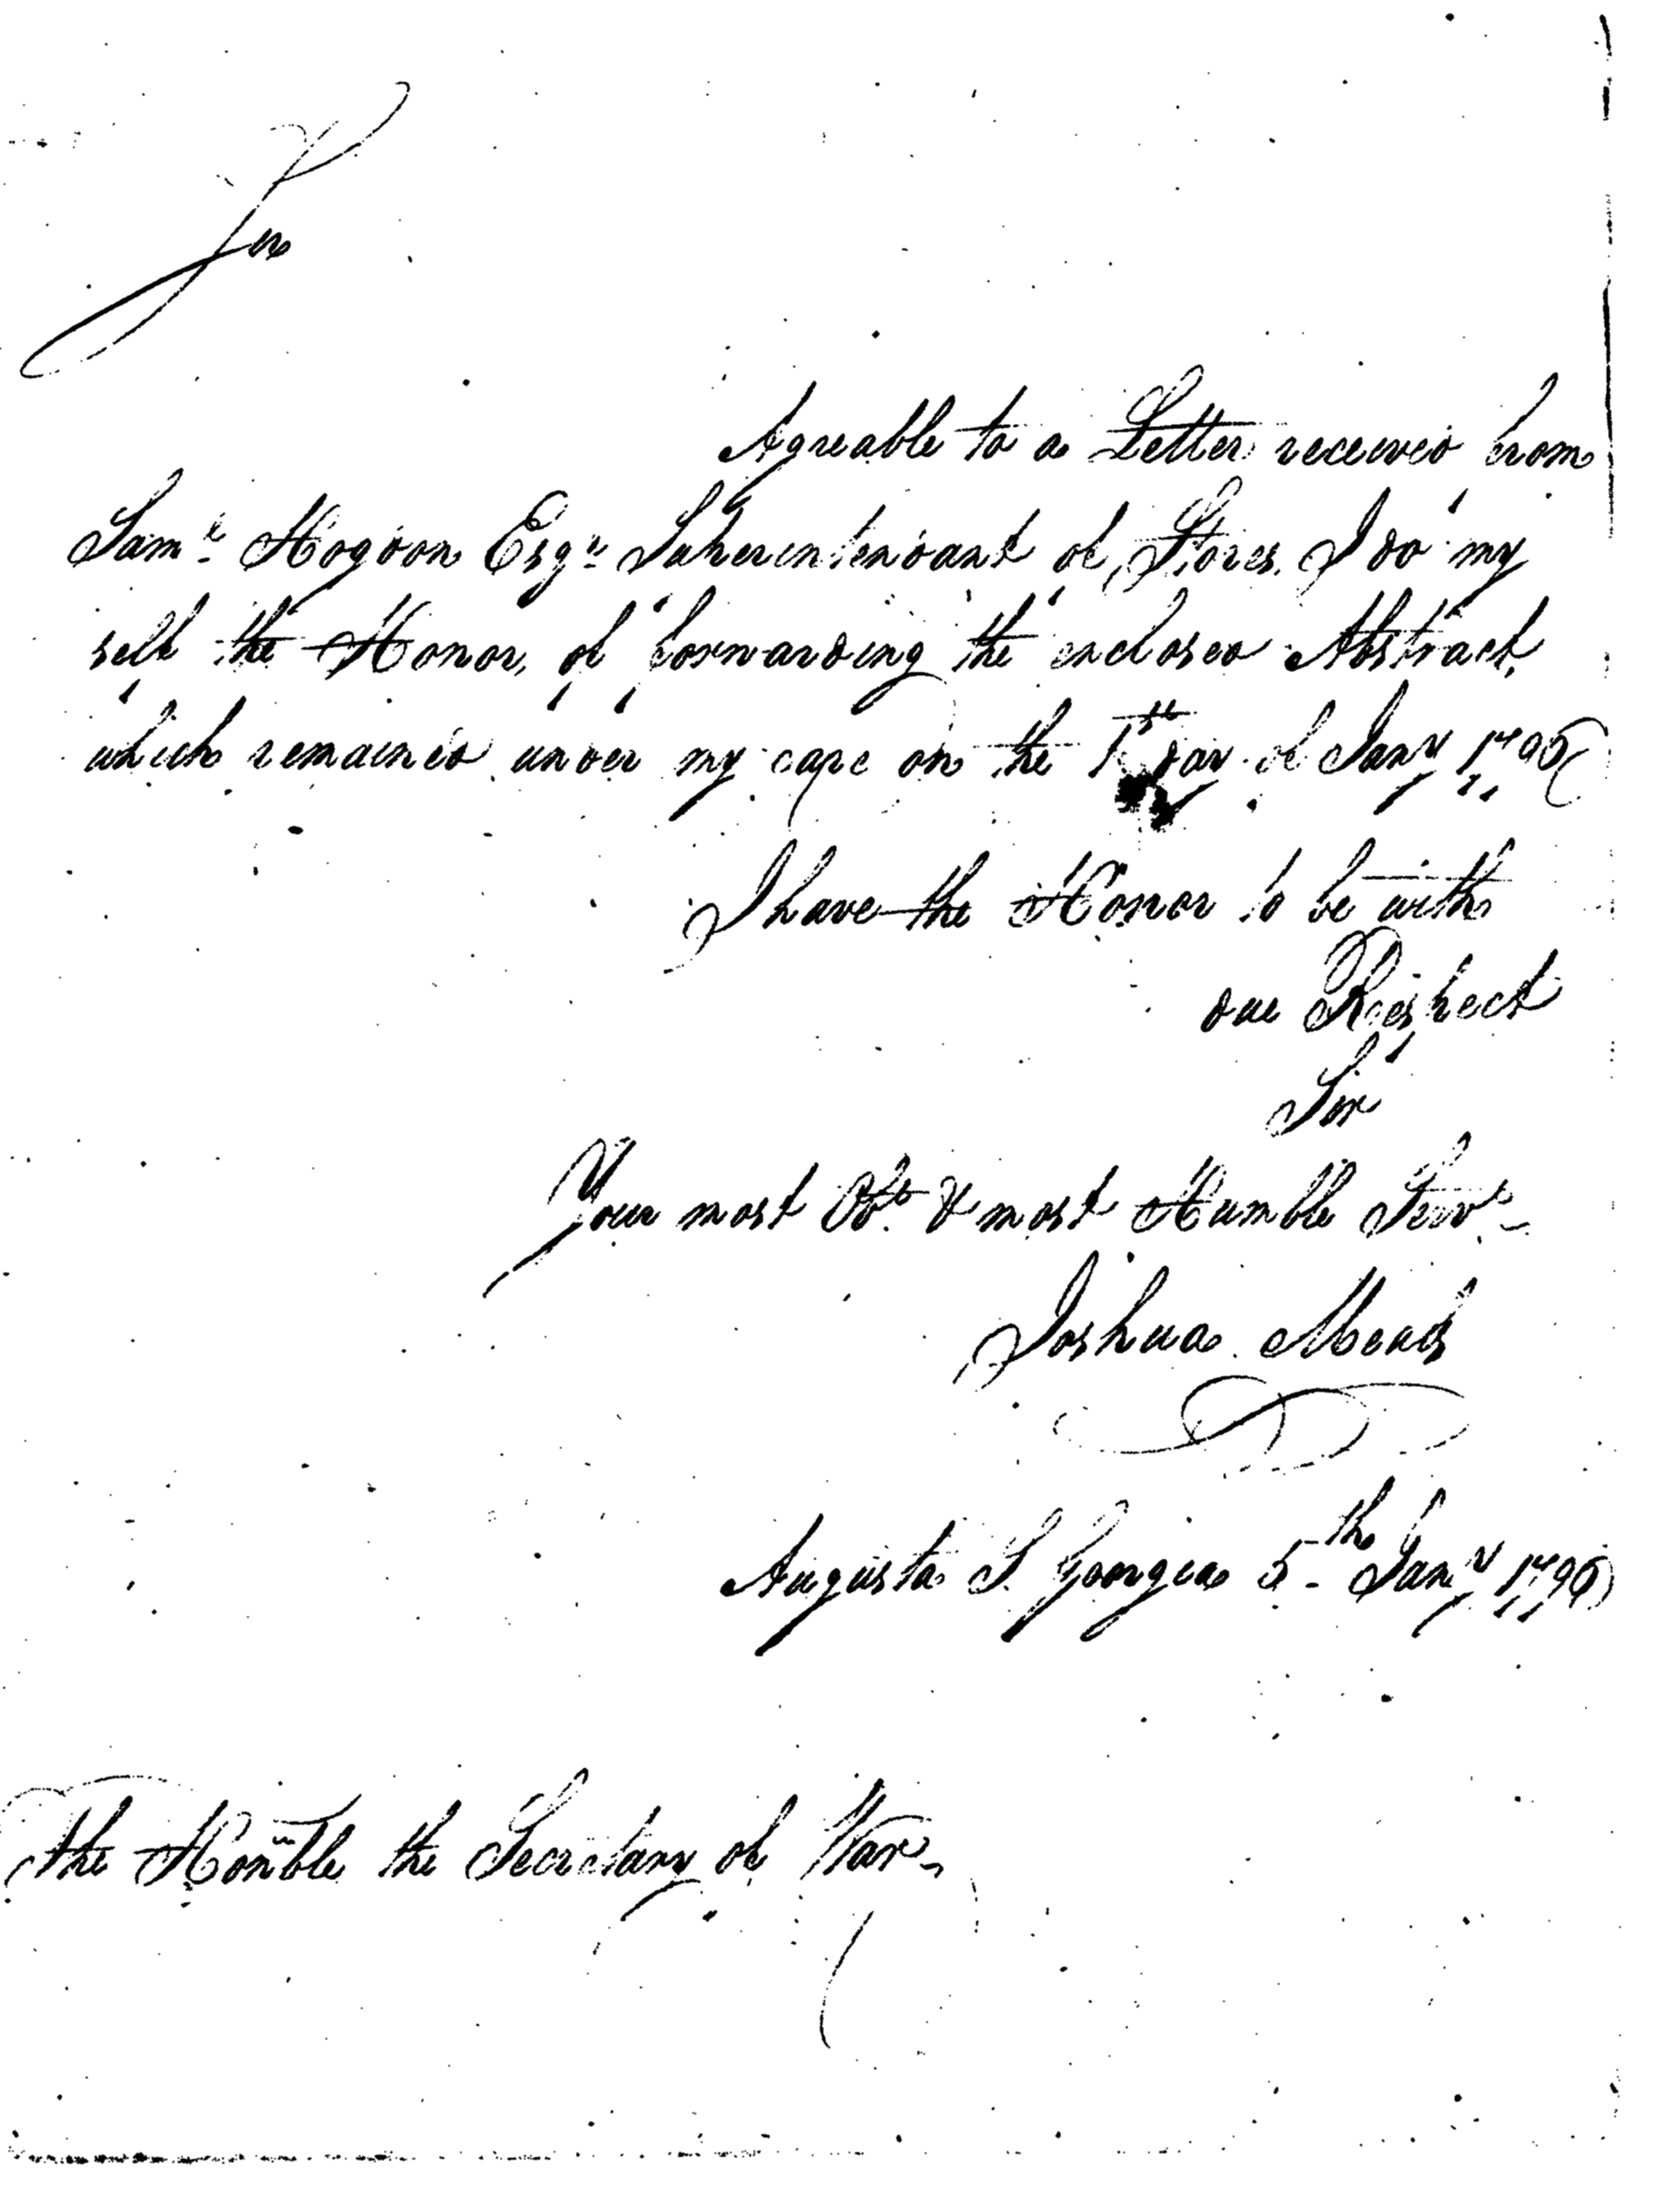 Sir
Agreable to a Letter received from
Saml Hogdon Esqr Superintendant of Stores I do my
self the Honor, of forwarding the enclosed Abstract,
which remained under my care on the 1st day of Jany 1796
I have the Honor to be with
due Respect
Sir
Your most Obt & most Humble Servt
Joshua Meals
Augusta S. Georgia 5th Jany 1796
The Honble the Secretary of War